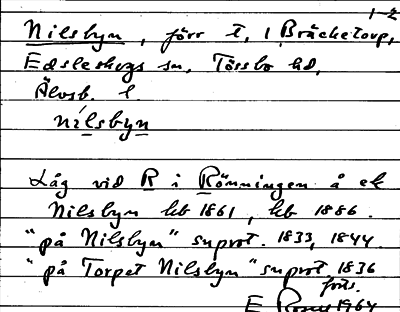 1-2
Nilsbyn, förr t. 1 Bräcketorp,
Edsleskogs sn, Tössbo hd,
Älvsb. l.
nìlsbyn
Låg vid R i Rönningen å ek
Nilsbyn hb 1861, hb 1886.
"på Nilsbyn" snprot. 1833, 1844.
"på Torpet Nilsbyn" snprot 1836
forts.
E 1964